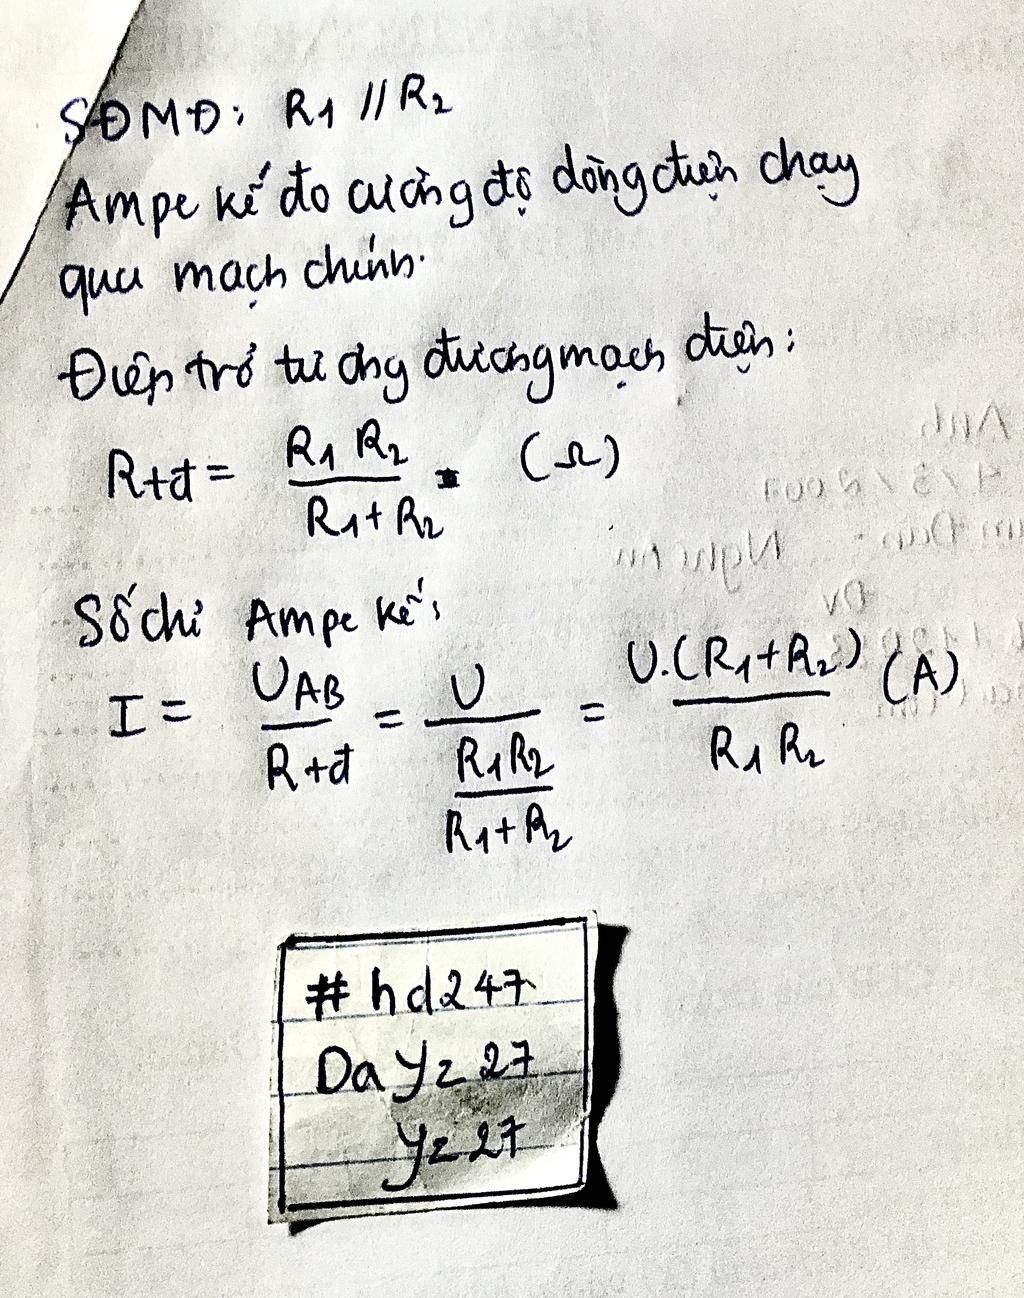 SĐMĐ: R1 // R2
Ampe kế đo cường độ dòng điện chạy
qua mạch chính.
Điện trở tương đương mạch điện:
Rtđ = R1 R2 / R1 + R2 . (Ω)
Số chỉ Ampe kế:
I = UAB / Rtđ = U / (R1R2 / R1 + R2) = U.(R1+R2) / R1 R2 (A)
#hd247
Da yz 27
yz 27